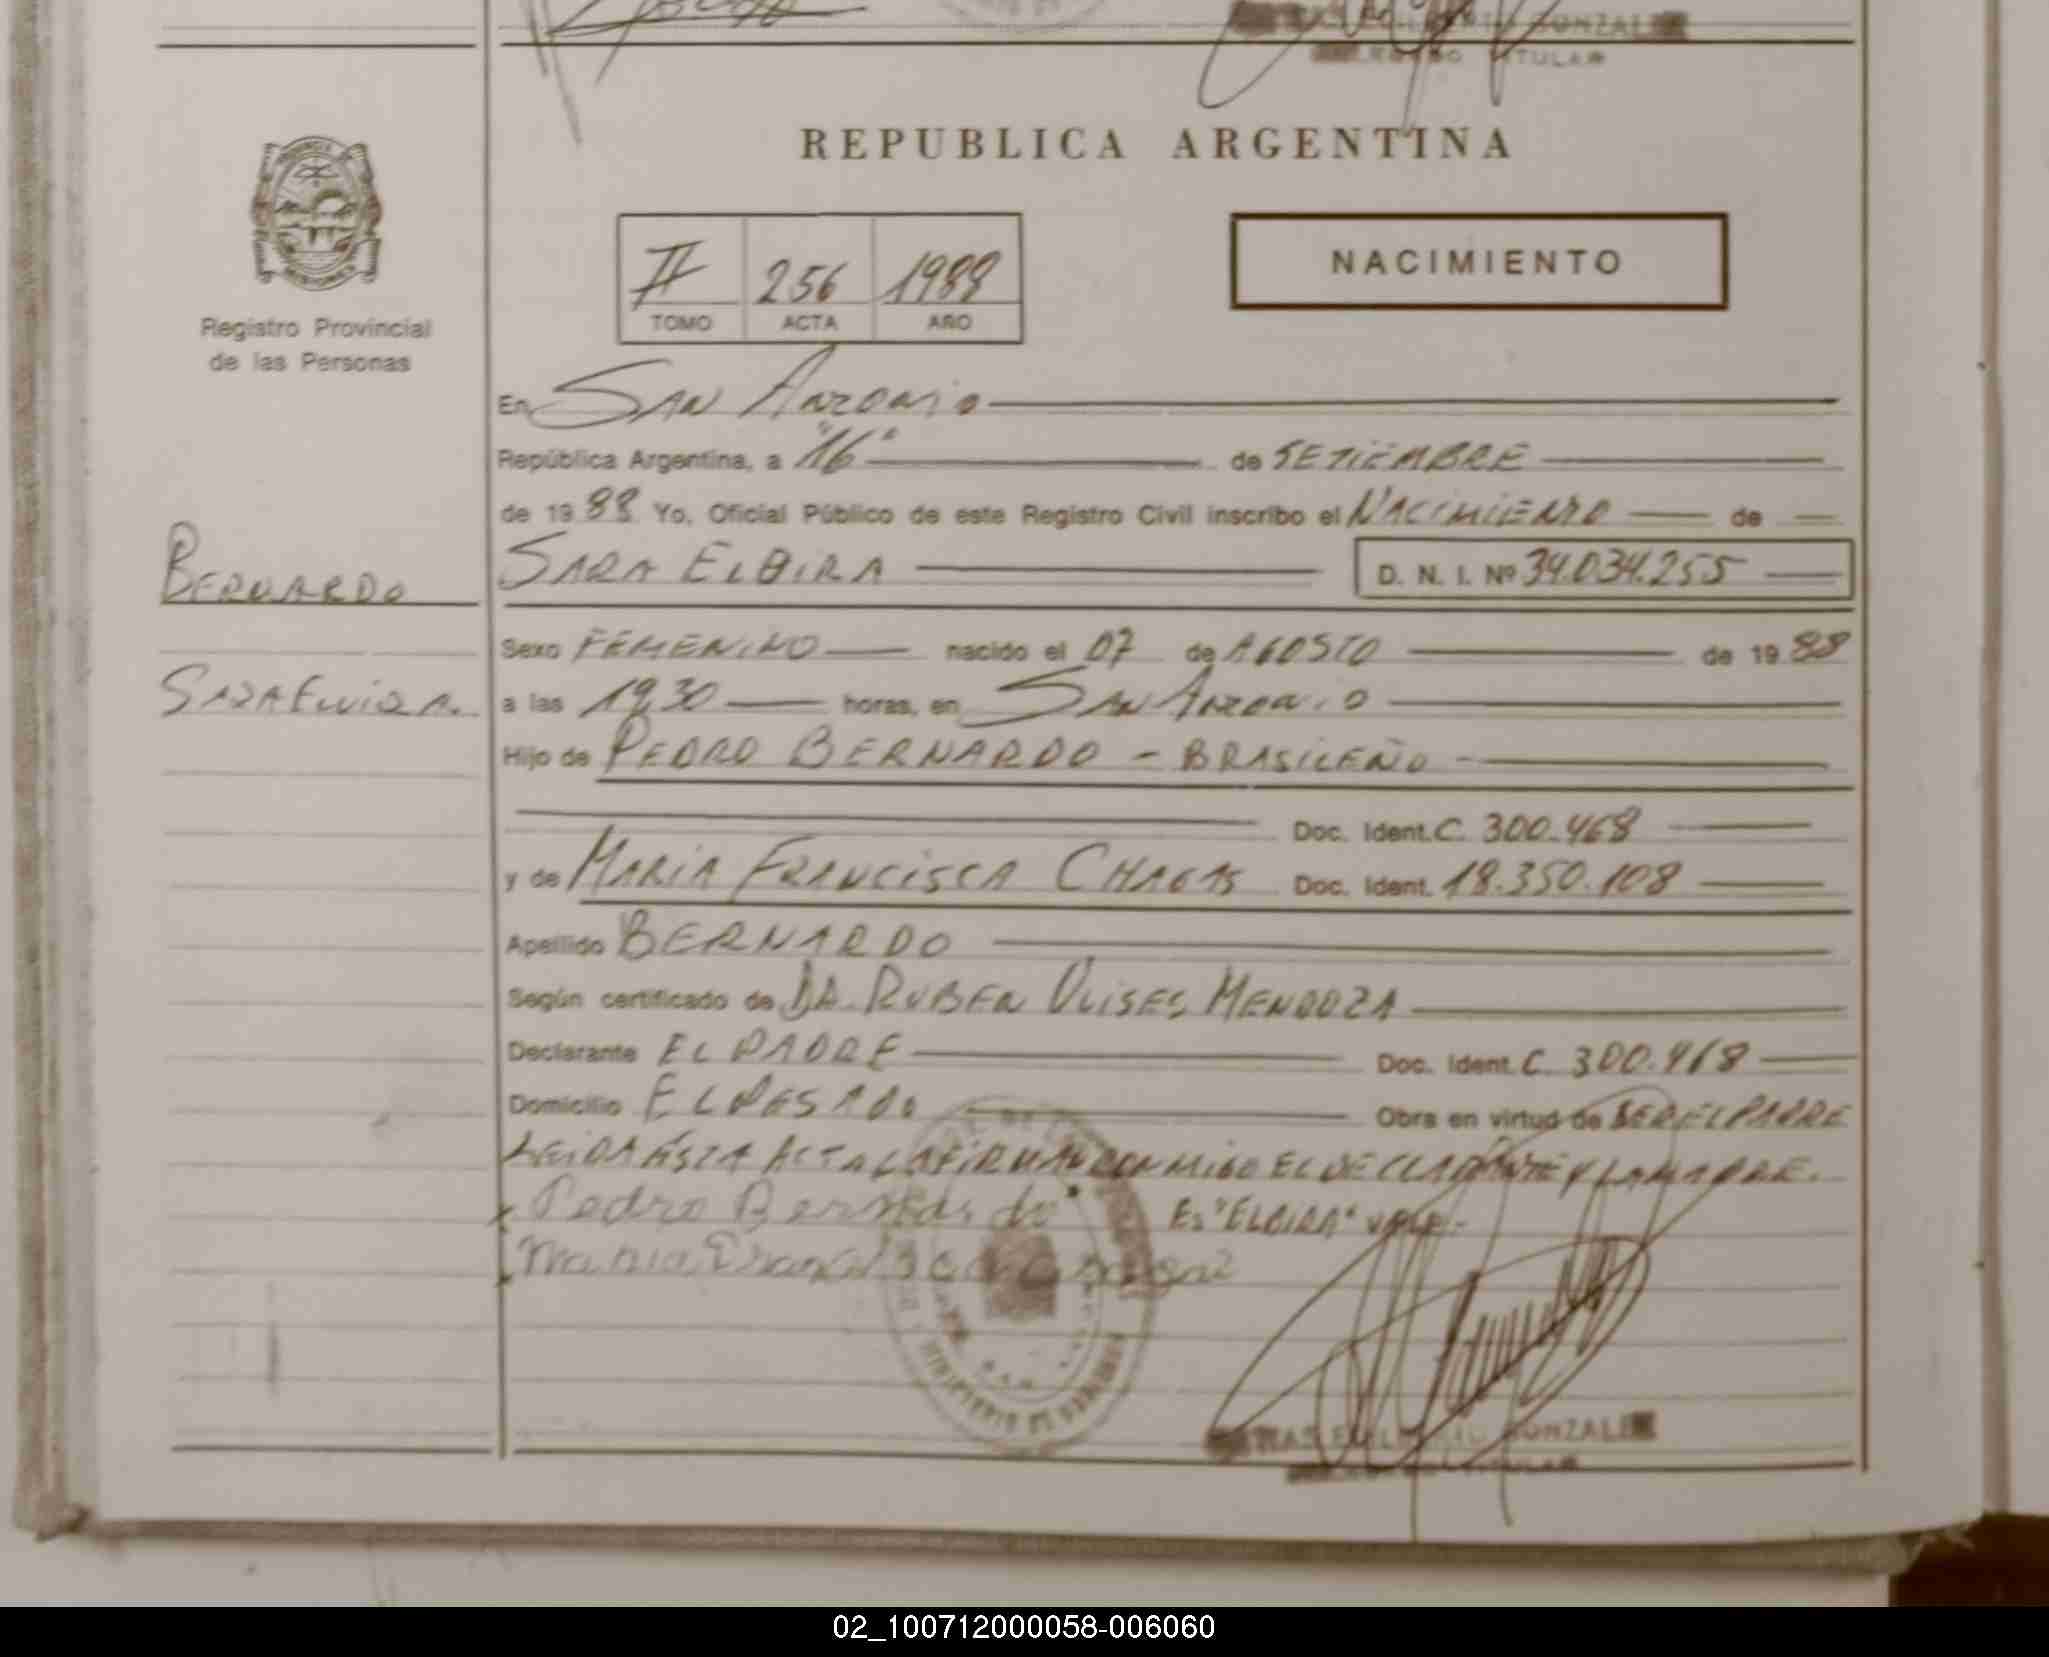 GONZALE
TITULAR
REPUBLICA ARGENTINA
II 256 1988
TOMO ACTA AÑO
NACIMIENTO
Registro Provincial
de las Personas
En SAN ANTONIO
República Argentina, a "16" de SETIEMBRE
de 19 88 Yo, Oficial Público de este Registro Civil inscribo el NACIMIENTO de
BERNARDO
SARA ELBIRA D. N. I. Nº 34.034.255
Sexo FEMENINO nacido el 07 de AGOSTO de 19 88
SARA ELVIRA.
a las 19,30 horas, en SAN ANTONIO
Hijo de PEDRO BERNARDO - BRASILEÑO -
Doc. Ident. C. 300.468
y de MARIA FRANCISCA CHAGAS Doc. Ident. 18.350.108
Apellido BERNARDO
Según certificado de DR. RUBEN ULISES MENDOZA
Declarante EL PADRE Doc. Ident. C. 300.468
Domicilio EL PESADO Obra en virtud de SER EL PADRE
LEIDA ESTA ACTA LA FIRMAN CONMIGO EL DECLARANTE Y LA MADRE.
x Pedro Bernardo Es "ELBIRA" VALE.-
Maria
MINISTERIO DE GOBIERNO
GONZALE
TITULAR
02_100712000058-006060